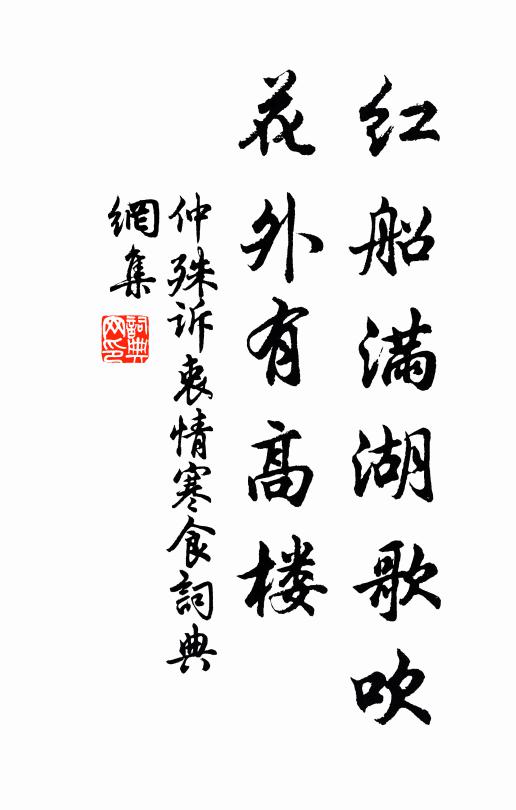 红船满湖歌吹
花外有高楼
仲殊诉衷情寒食詞典
網集
詞典网印